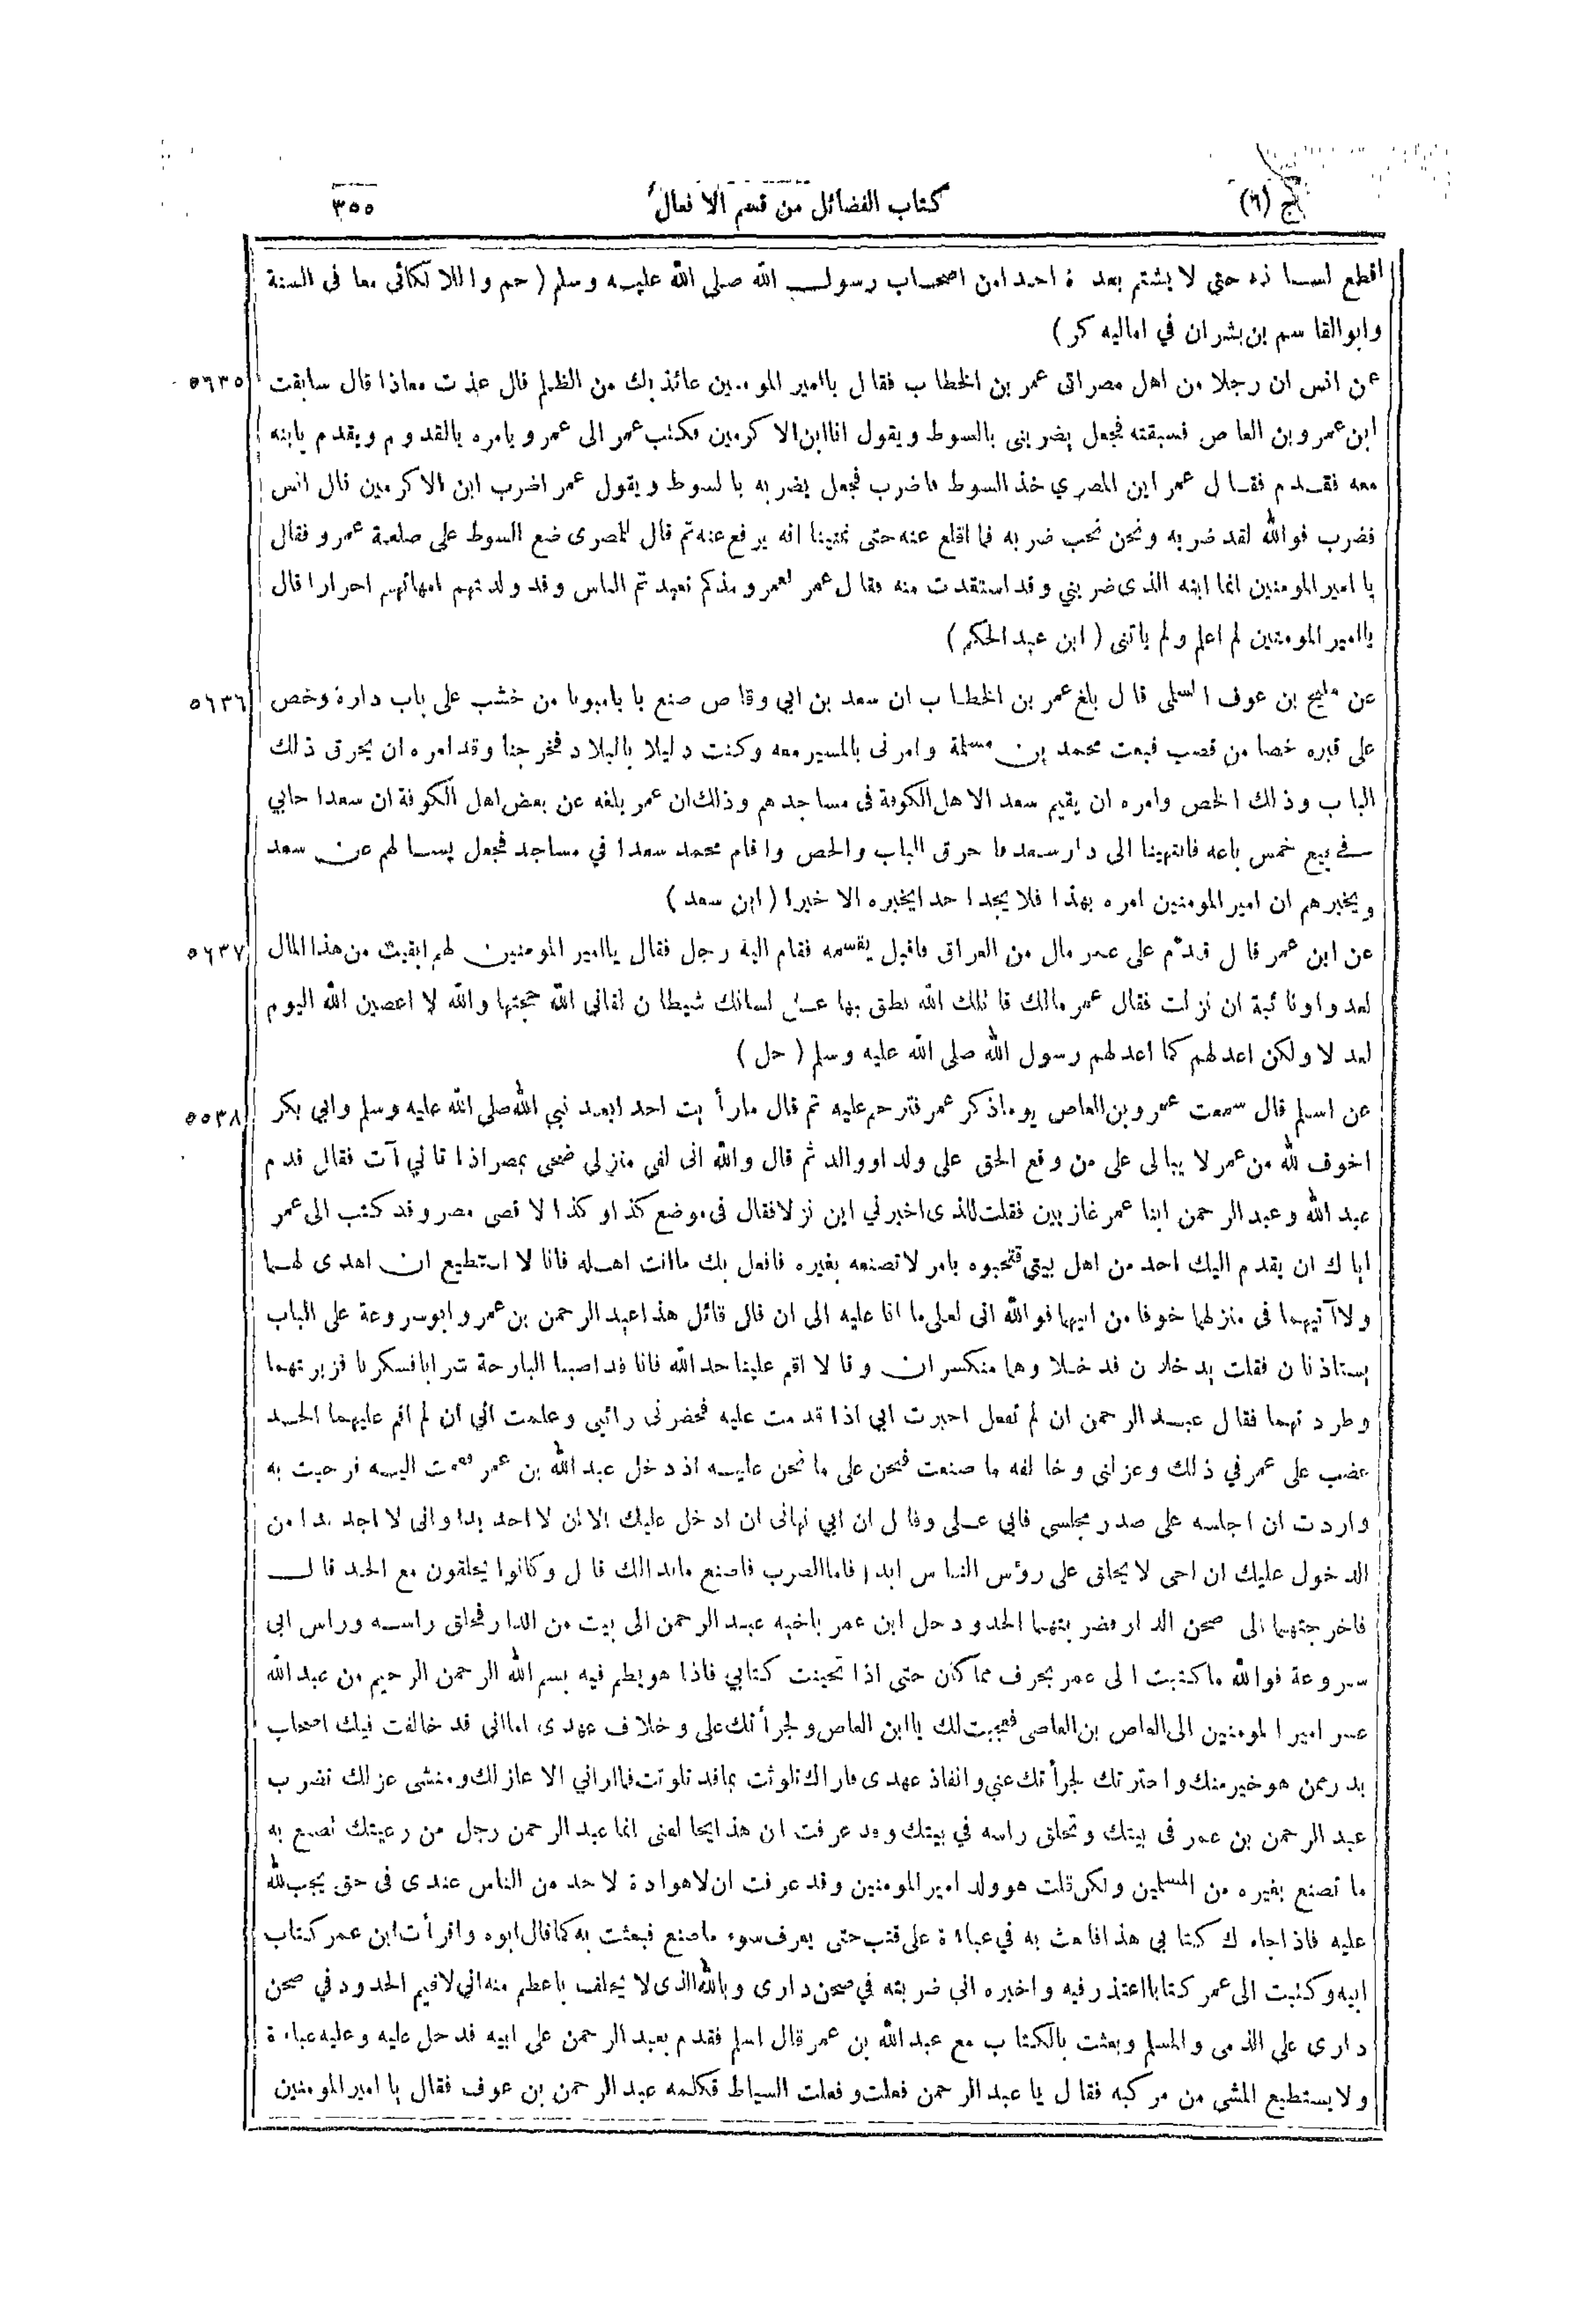 ج (٦) كتاب الفضائل من قسم الافعال ٣٥٥
اقطع لسانه حتى لا يشتم بعده احدا من اصحاب رسول الله صلى الله عليه وسلم (حم واللالكائى معا فى السنة
وابو القاسم بن بشران في اماليه كر)
٥٦٣٥ عن انس ان رجلا من اهل مصر اتى عمر بن الخطاب فقال يا امير المومنين عائذ بك من الظلم قال عذت معاذا قال سابقت
ابن عمرو بن العاص فسبقته فجعل يضربنى بالسوط ويقول انا ابن الاكرمين فكتب عمر الى عمرو يامره بالقدوم ويقدم بابنه
معه فقدم فقال عمر اين المصري خذ السوط فاضرب فجعل يضربه بالسوط ويقول عمر اضرب ابن الاكرمين قال انس
فضرب فوالله لقد ضربه ونحن نحب ضربه فما اقلع عنه حتى تمنينا انه يرفع عنه ثم قال للمصرى ضع السوط على صلعة عمرو فقال
يا امير المومنين انما ابنه الذى ضربني وقد استقدت منه فقال عمر لعمرو مذكم تعبدتم الناس وقد ولدتهم امهاتهم احرارا قال
يا امير المومنين لم اعلم ولم ياتنى (ابن عبد الحكم)
٥٦٣٦ عن مليح بن عوف السلمى قال بلغ عمر بن الخطاب ان سعد بن ابي وقاص صنع بابا مبوبا من خشب على باب داره وخص
على قبره خصا من قصب فبعث محمد بن مسلمة وامرنى بالمسير معه وكنت دليلا بالبلاد فخرجنا وقد امره ان يحرق ذلك
الباب وذلك الخص وامره ان يقيم سعد الاهل الكوفة فى مساجدهم وذلك ان عمر بلغه عن بعض اهل الكوفة ان سعدا حابي
في بيع خمس باعه فانتهينا الى دار سعد فاحرق الباب والخص واقام محمد سعدا في مساجد فجعل يسالهم عن سعد
ويخبرهم ان امير المومنين امره بهذا فلا يجد احدا يخبره الا خيرا (ابن سعد)
٥٦٣٧ عن ابن عمر قال قدم على عمر مال من العراق فاقبل يقسمه فقام اليه رجل فقال يا امير المومنين لو ابقيت من هذا المال
لعدو او نائبة ان نزلت فقال عمر مالك قاتلك الله نطق بها على لسانك شيطان لقانى الله حجتها والله لا اعصين الله اليوم
لغد لا ولكن اعد لهم كما اعد لهم رسول الله صلى الله عليه وسلم (حل)
٥٥٣٨ عن اسلم قال سمعت عمرو بن العاص يوما ذكر عمر فترحم عليه ثم قال مارأيت احدا بعد نبي الله صلى الله عليه وسلم وابي بكر
اخوف لله من عمر لا يبالى على من وقع الحق على ولد او والد ثم قال والله انى لفى منزلي ضحى بمصر اذ اتاني آت فقال قدم
عبد الله وعبد الرحمن ابنا عمر غازيين فقلت للذى اخبرني اين نزلا فقال فى موضع كذا وكذا لاقصى مصر وقد كتب الى عمر
اياك ان يقدم اليك احد من اهل بيتى فتحبوه بامر لا تصنعه بغيره فافعل بك ما انت اهله فانا لا استطيع ان اهدى لهما
ولا آتيهما فى منزلهما خوفا من ابيهما فوالله انى لعلى ما انا عليه الى ان قال قائل هذا عبد الرحمن بن عمر وابو سروعة على الباب
يستاذنان فقلت يدخلان فدخلا وهما منكسران وقالا اقم علينا حد الله فانا قد اصبنا البارحة شرابا فسكرنا فزبرتهما
وطردتهما فقال عبد الرحمن ان لم تفعل اخبرت ابي اذا قدمت عليه فحضرنى رائيى وعلمت انى ان لم اقم عليهما الحد
غضب على عمر في ذلك وعزلنى وخالفه ما صنعت فنحن على ما نحن عليه اذ دخل عبد الله بن عمر فقمت اليه فرحبت به
واردت ان اجلسه على صدر مجلسي فابي على وقال ان ابي نهانى ان ادخل عليك الا ان لا اجد بدا وانى لا اجد بدا من
الدخول عليك ان اخى لا يحلق على رؤس الناس ابدا فاما الضرب فاصنع ما بدا لك قال وكانوا يحلقون مع الحد قال
فاخرجتهما الى صحن الدار فضربتهما الحد ودخل ابن عمر باخيه عبد الرحمن الى بيت من الدار فحلق راسه وراس ابى
سروعة فوالله ما كتبت الى عمر بحرف مما كان حتى اذا تحينت كتابي فاذا هو يطم فيه بسم الله الرحمن الرحيم من عبد الله
عمر امير المومنين الى العاص بن العاصى فعجبت لك يا ابن العاص ولجرأتك على وخلاف عهدى اما انى قد خالفت فيك اصحاب
بدر ممن هو خير منك واخترتك لجرأتك عني وانفاذ عهدى فاراك تلوثت بما قد تلوثت فما اراني الا عازلك ومنشى عزلك تضرب
عبد الرحمن بن عمر فى بيتك وتحلق راسه في بيتك وقد عرفت ان هذا يخالفنى انما عبد الرحمن رجل من رعيتك تصنع به
ما تصنع بغيره من المسلمين ولكن قلت هو ولد امير المومنين وقد عرفت ان لاهوادة لاحد من الناس عندى فى حق يجب لله
عليه فاذا جاءك كتابي هذا فابعث به في عباءة على قتب حتى يعرف سوء ما صنع فبعثت به كما قال ابوه واقرأت ابن عمر كتاب
ابيه وكتبت الى عمر كتابا اعتذر فيه واخبره انى ضربته في صحن دارى وبالله الذى لا يحلف باعظم منه انى لاقيم الحدود في صحن
دارى على الذمى والمسلم وبعثت بالكتاب مع عبد الله بن عمر قال اسلم فقدم بعبد الرحمن على ابيه فدخل عليه وعليه عباءة
ولا يستطيع المشى من مركبه فقال يا عبد الرحمن فعلت وفعلت السياط فكلمه عبد الرحمن بن عوف فقال يا امير المومنين